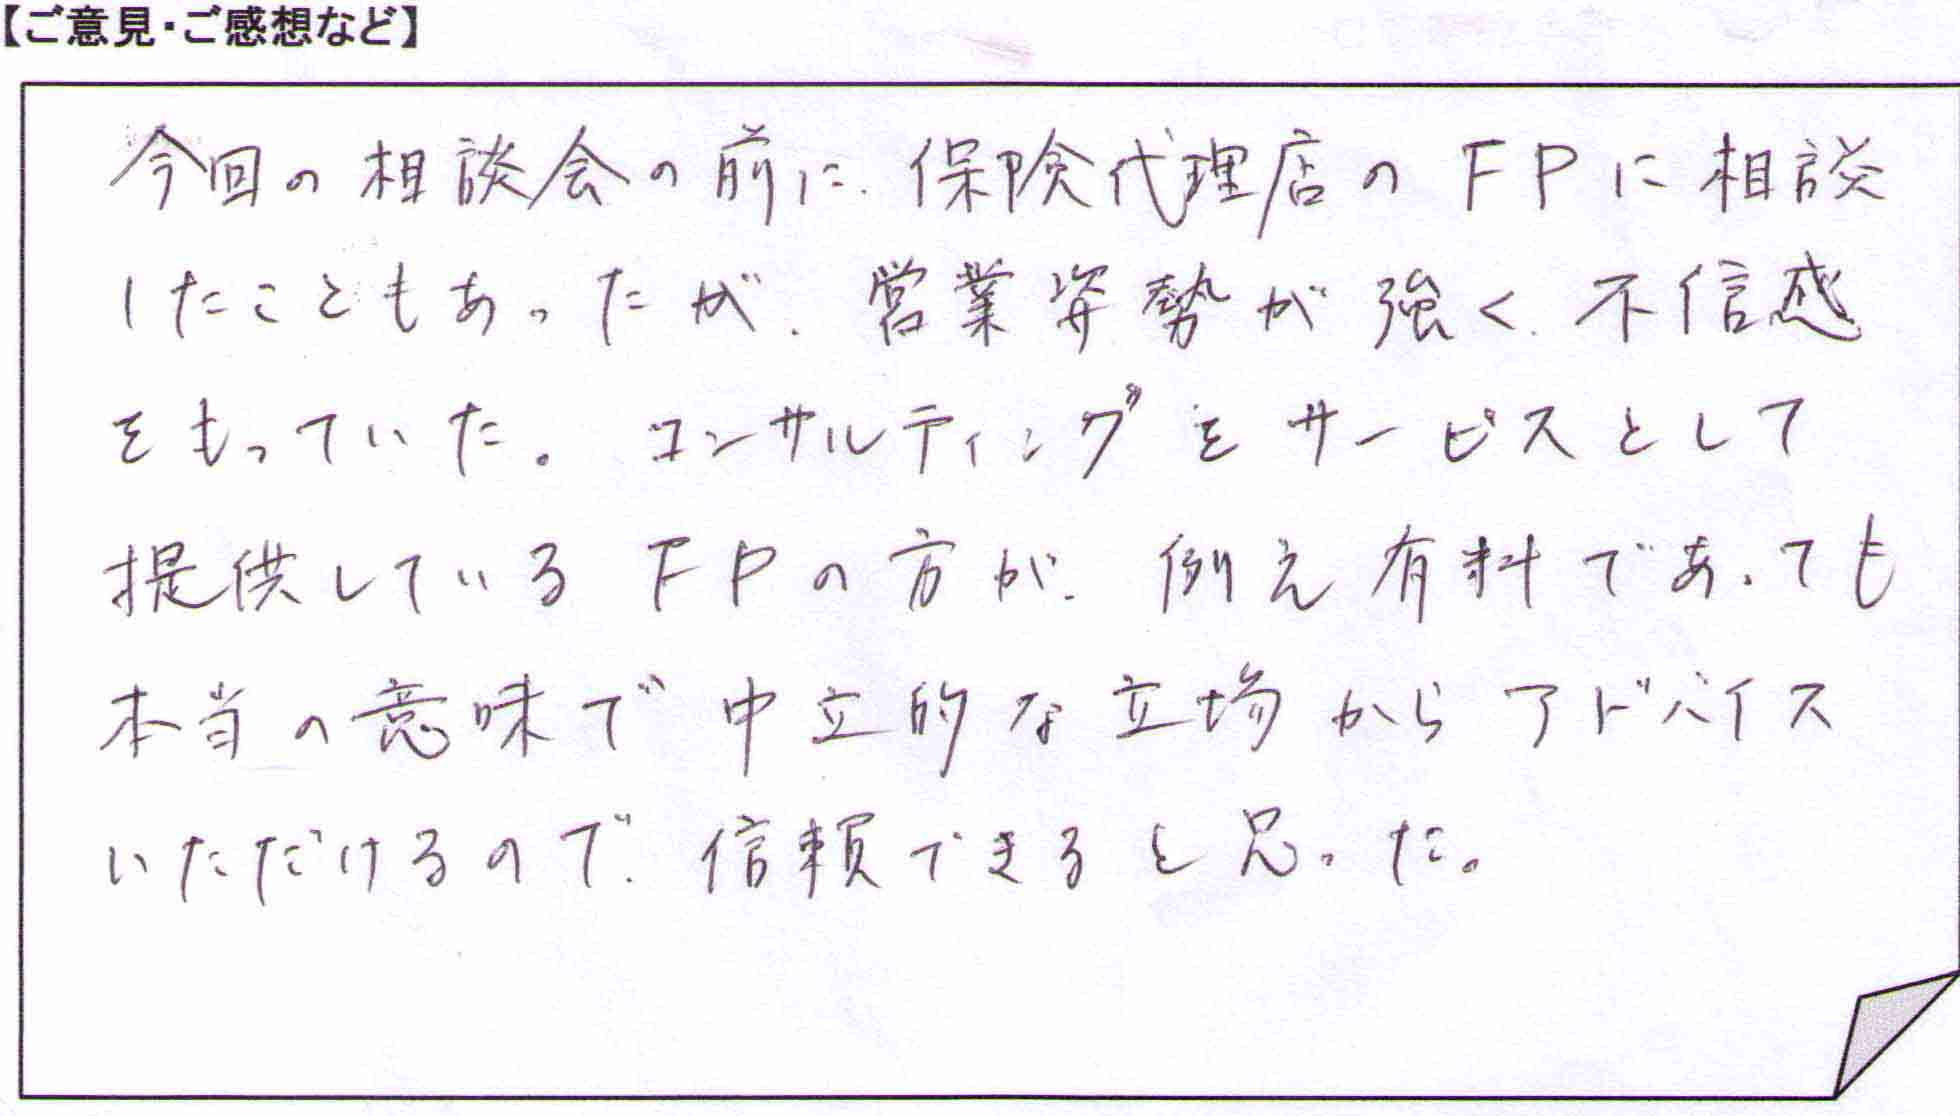 【ご意見・ご感想など】
今回の相談会の前に、保険代理店のFPに相談
したこともあったが、営業姿勢が強く、不信感
をもっていた。コンサルティングをサービスとして
提供しているFPの方が、例え有料であっても
本当の意味で中立的な立場からアドバイス
いただけるので、信頼できると思った。